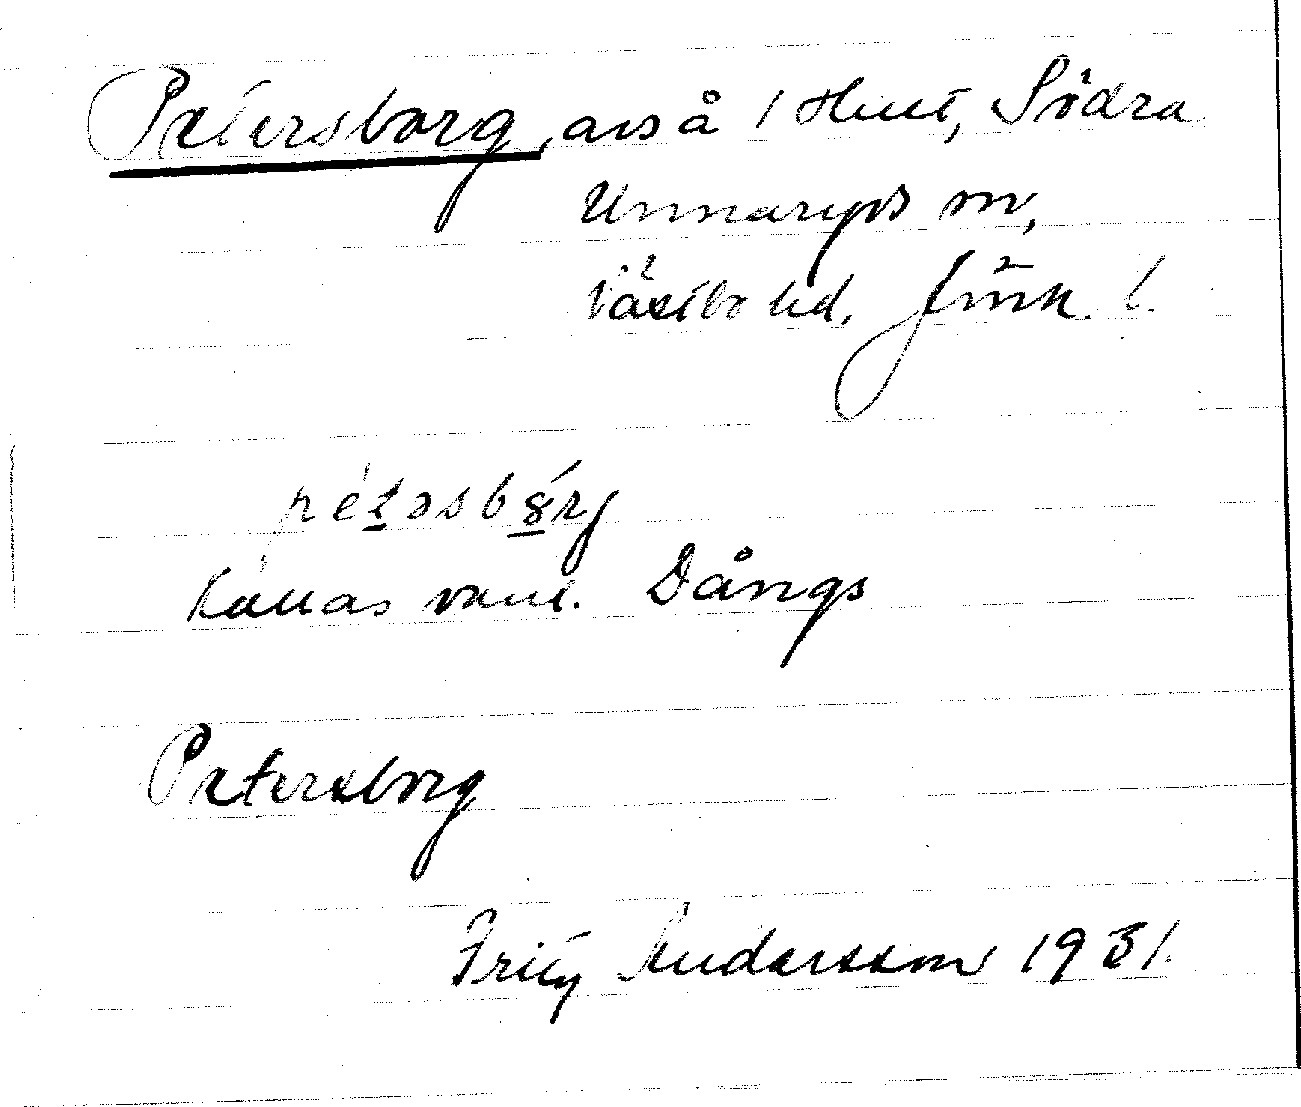 Petersborg, avs å 1 Hult, Södra
Unnaryds sn,
Västbo hd, Jönk. l.
Kallas vanl. Dångs
Petersborg
Fritz Andersson 1931.